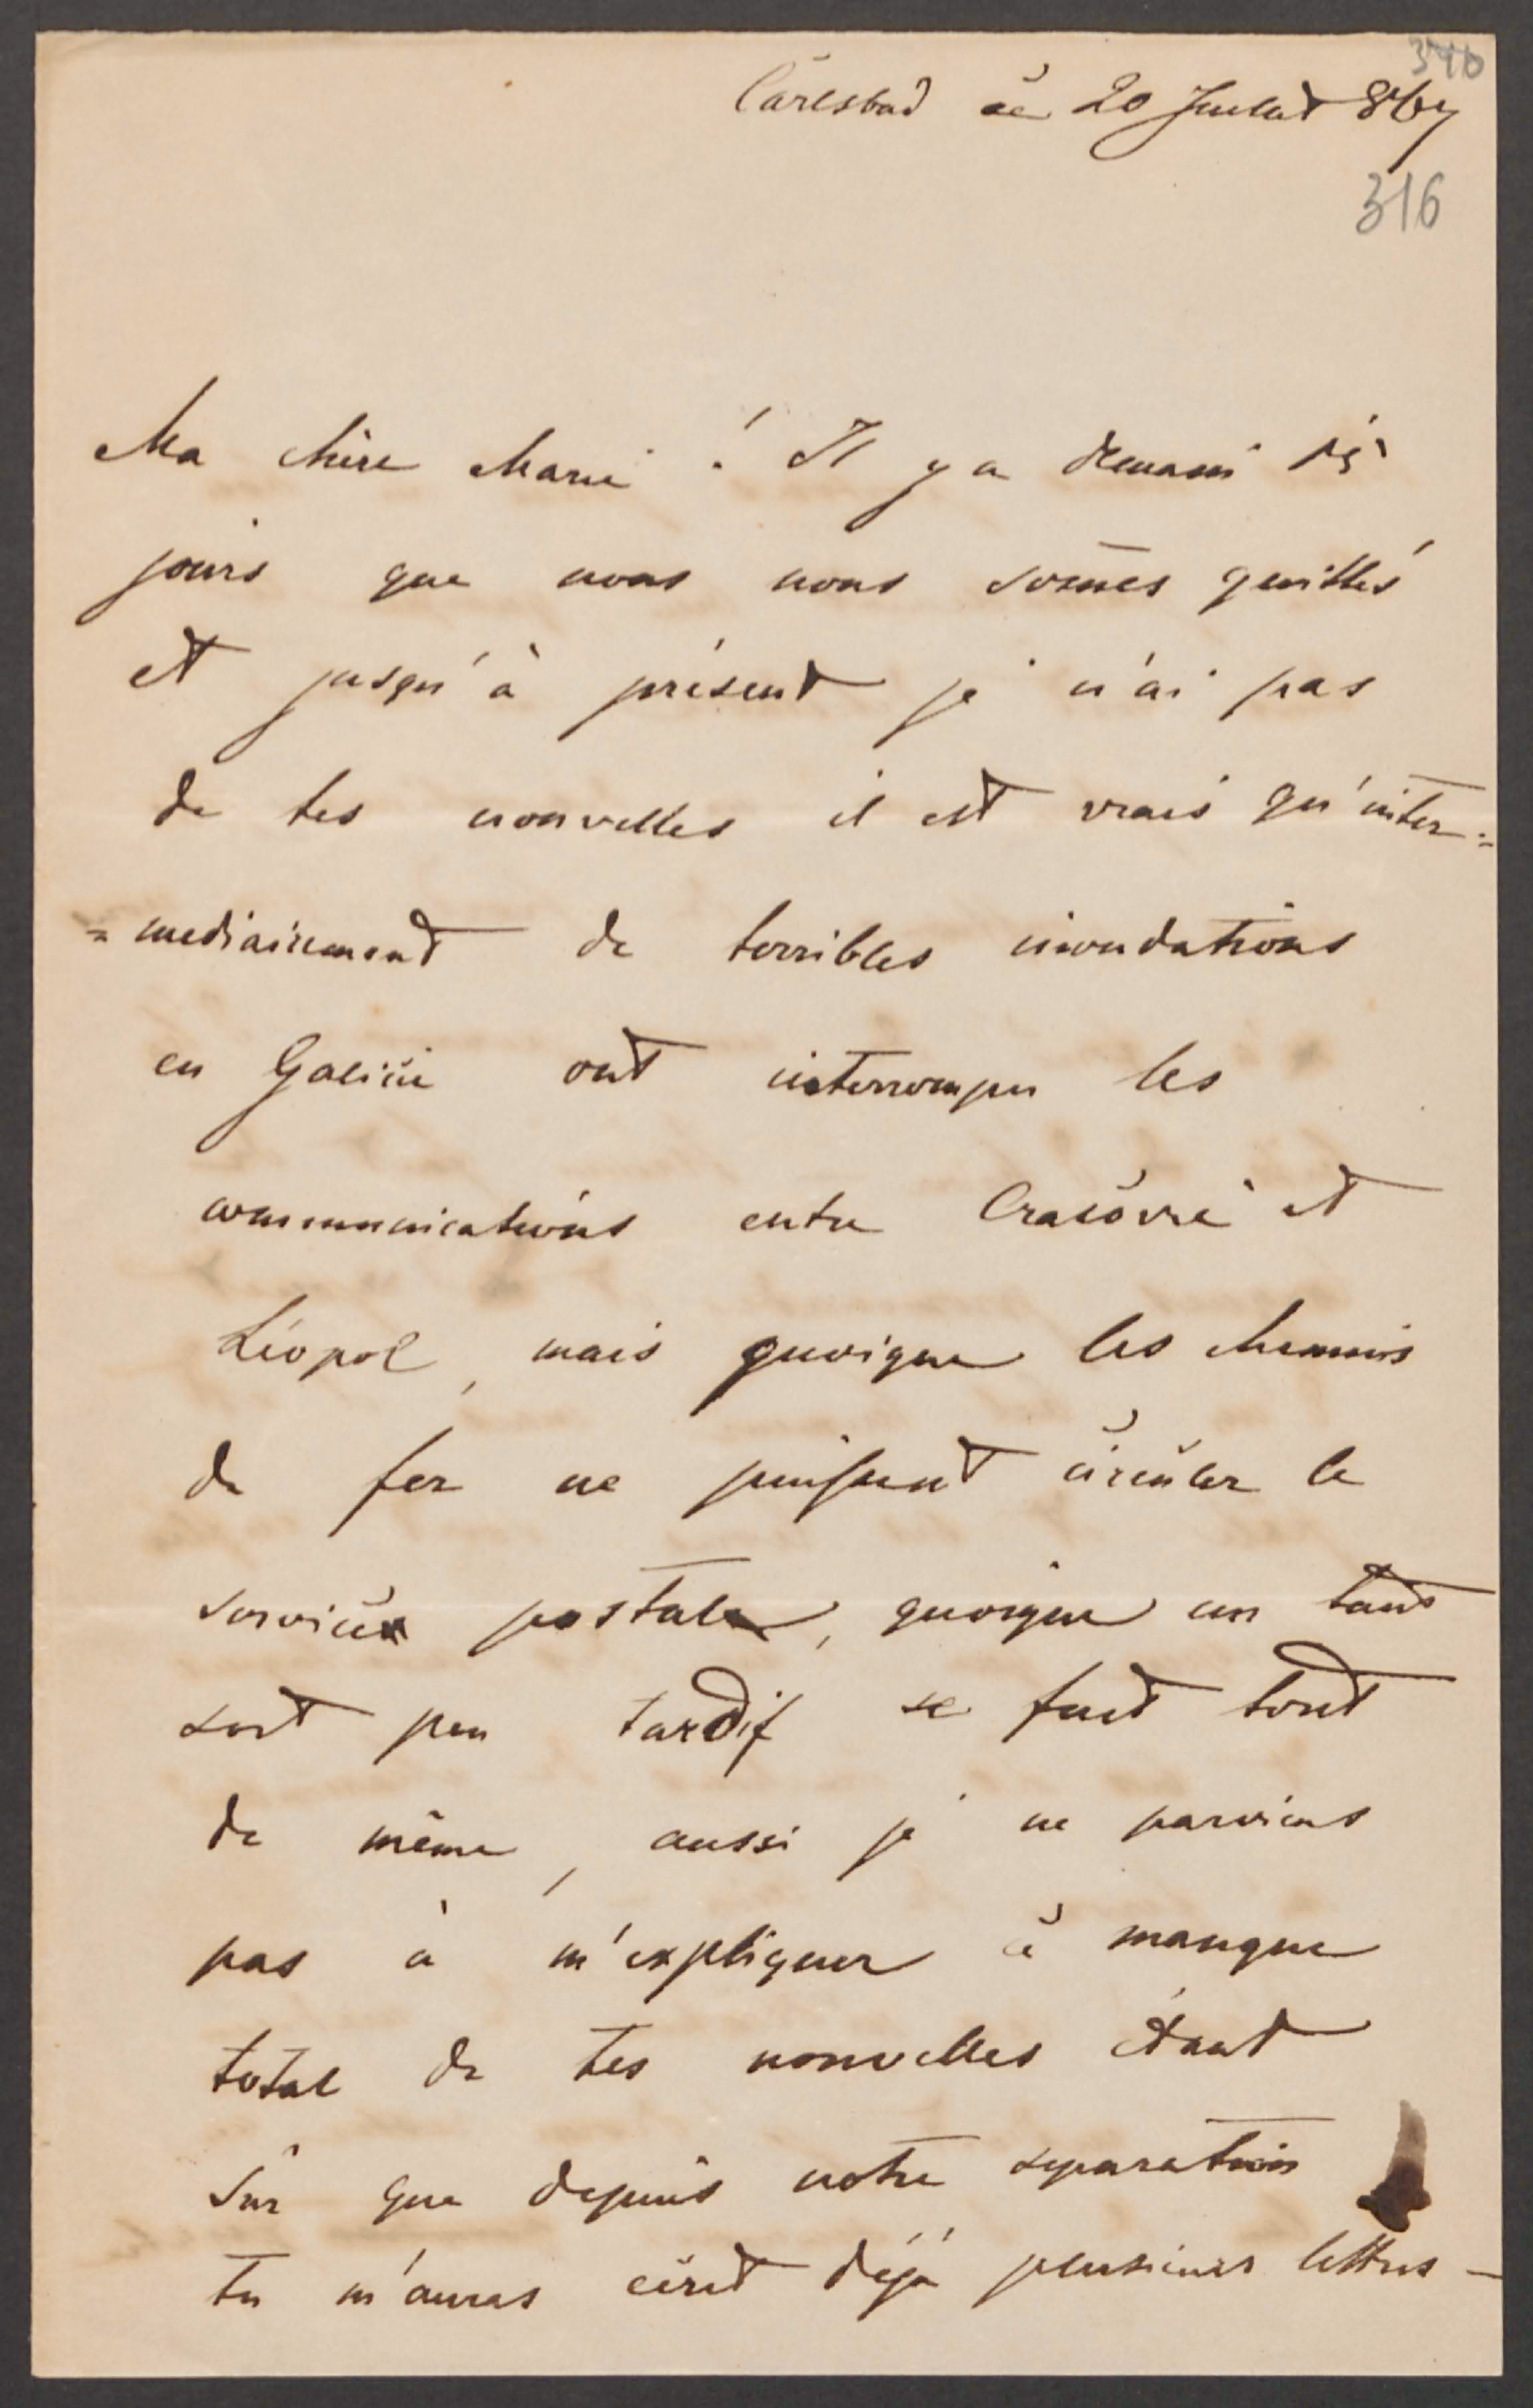 340
Carlsbad ce 20 Juillet 867
316
Ma chère Marie ! Il y a demain dix
jours que nous nous som̄es quittés
et jusqu'à présent je n'ai pas
de tes nouvelles il est vrais qu'inter=
=mediairement de terribles inondations
en Galicie ont interrompu les
communications entre Cracovie et
Léopol, mais quoique les chemins
de fer ne puissent circuler le
service postal, quoique un tant
soit peu tardif se fait tout
de même, aussi je ne parviens
pas à m'expliquer ce manque
total de tes nouvelles étant
sûr que depuis notre separation
tu m'auras écrit déjà plusieurs lettres –